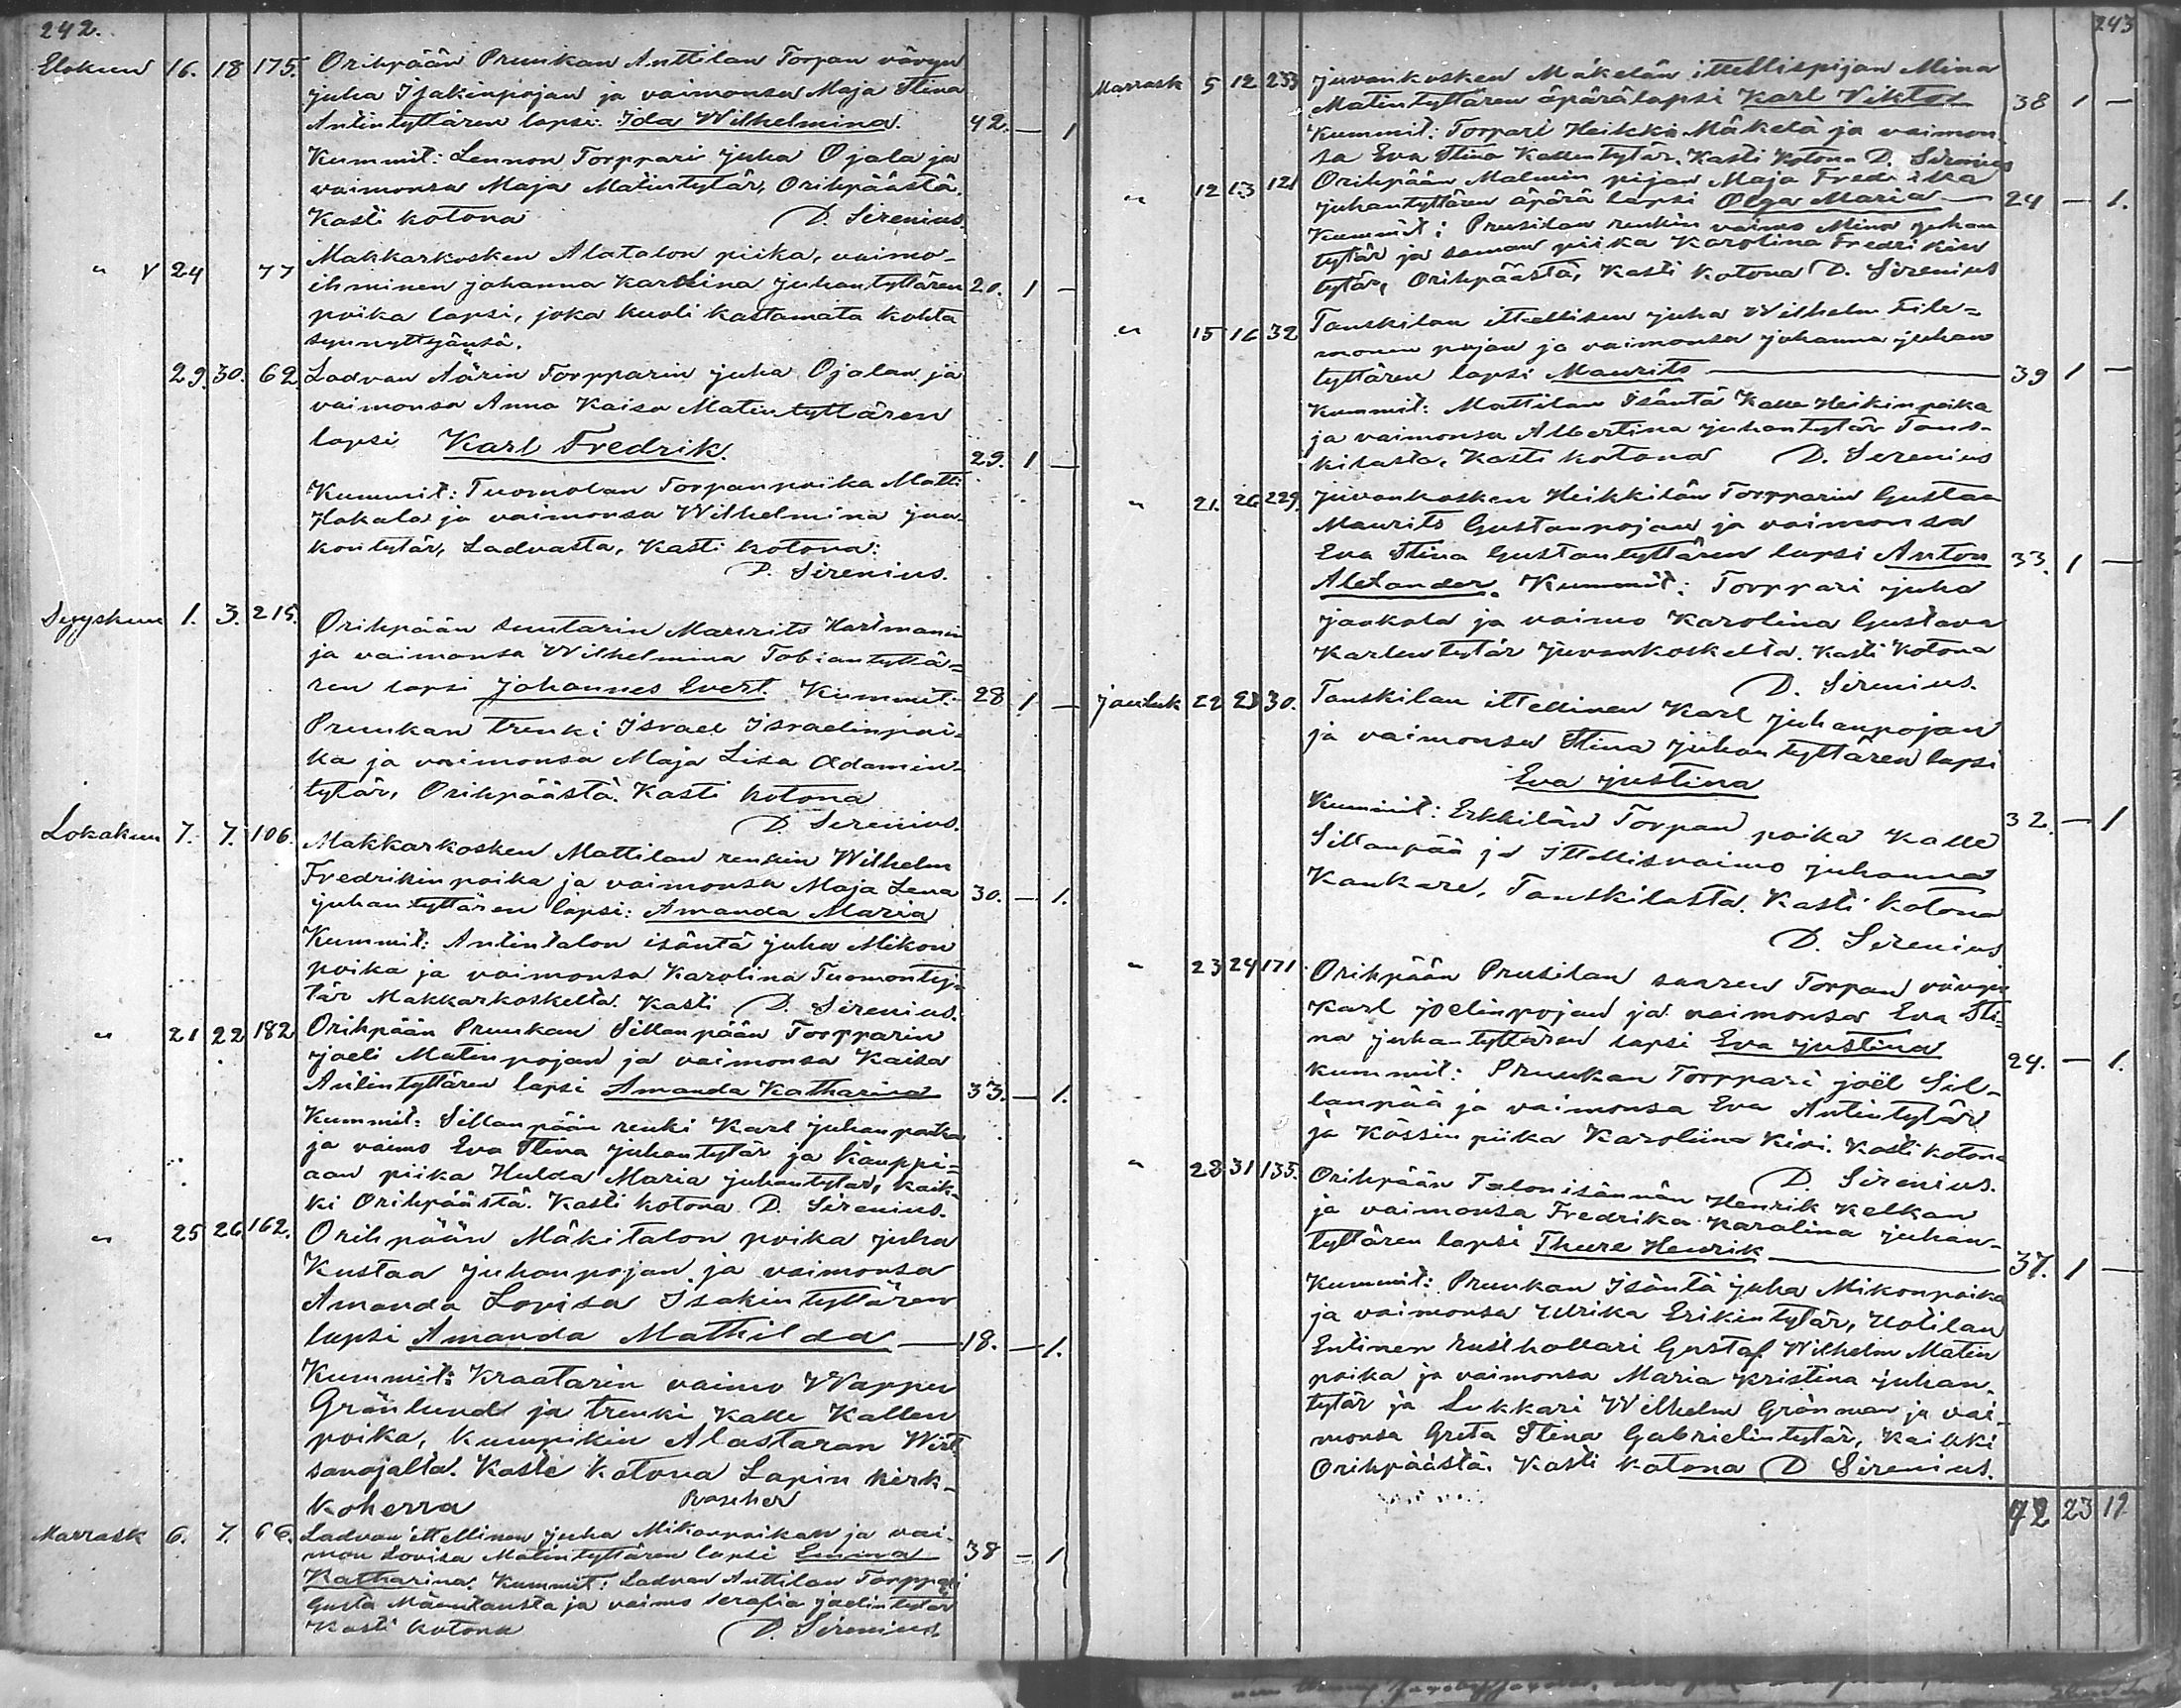 242.
Elokuu 16. 18 175. Orihpään Pruukan Anttilan Torpan vävyn
Juha Isakinpojan ja vaimonsa Maja Stina
Antintyttären lapsi: Ida Wilhelmina. 42. — 1
Kummit: Lennon Torppari Juha Ojala ja
vaimonsa Maja Matintytär, Orihpäästä,
Kasti kotona D. Sirenius.
" 24 77 Makkarkosken Alatalon piika, vaimo-
ihminen Johanna Karolina Juhantyttären 20. 1 —
poika lapsi, joka kuoli kastamata kohta
synnyttyänsä.
29. 30. 62 Ladvan Äärin Torpparin Juha Ojalan ja
vaimonsa Anna Kaisa Matintyttären
lapsi Karl Fredrik. 29. 1 —
Kummit: Tuomolan Torpanpoika Matti
Hakala ja vaimonsa Wilhelmina Jaa-
kontytär, Ladvasta, Kasti kotona:
D. Sirenius.
Syyskuu 1. 3. 215. Orihpään suutarin Maurits Hartmanin
ja vaimonsa Wilhelmina Tobiantyttä=
ren lapsi Johannes Evert. Kummit: 28 1 —
Pruukan trenki Israel Israelinpoi-
ka ja vaimonsa Maja Lisa Adamin-
tytär, Orihpäästä. Kasti kotona
D. Sirenius.
Lokakuu 7. 7. 106. Makkarkosken Mattilan renkin Wilhelm
Fredrikinpoika ja vaimonsa Maja Lena 30. — 1.
Juhantyttären lapsi: Amanda Maria
Kummit: Antintalon isäntä Juha Mikon
poika ja vaimonsa Karolina Tuomonty-
tär Makkarkoskelta. Kasti D. Sirenius.
" 21 22 182 Orihpään Pruukan Sillanpään Torpparin
Joeli Matinpojan ja vaimonsa Kaisa
Antintyttären lapsi Amanda Katharina 33. — 1.
Kummit: Sillanpään renki Karl Juhanpoika
ja vaimo Eva Stina Juhantytär ja Kauppi=
aan piika Hulda Maria Juhantytär, kaik-
ki Orihpäästä. Kasti kotona D. Sirenius.
" 25 26 162. Orihpään Mäkitalon poika Juha
Kustaa Juhanpojan ja vaimonsa
Amanda Lovisa Isakintyttären
lapsi Amanda Mathilda — 18. — 1.
Kummit: Kraatarin vaimo Wappu
Grönlund ja trenki Kalle Kallen
poika, kumpikin Alastaran Wirt-
sanojalta. Kasti kotona Lapin kirk-
koherra
Marrask 6. 7. 66. Ladvan ittellinen Juha Mikonpoikan ja vai-
mon Lovisa Matintyttären lapsi Emma 38 — 1
Katharina. Kummit: Ladvan Anttilan Torppari
Gusta ja vaimo Serafia Joelintytär
Kasti kotona D. Sirenius
243
Marrask 5 12 233 Juvankosken Mäkelän ittellispijan Mina
Matintyttären äpärälapsi Karl Viktor 38 1 —
Kummit: Torpari Heikki Mäkelä ja vaimon-
sa Eva Stina Kallentytär. Kasti kotona D. Sirenius
" 12 13 121 Orihpään Malmin pijan Maja Fredrika
Juhantyttären äpärä lapsi Olga Maria — 24 — 1.
Kummit: Prusilan renkin vaimo Mina Juhan
tytär ja saman piika Karolina Fredrikin
tytär, Orihpäästä, Kasti kotona D. Sirenius
" 15 16 32 Tanskilan ittellisen Juha Wilhelm File=
monin pojan ja vaimonsa Johanna Juhan
tyttären lapsi Maurits — 39 1 —
Kummit: Mattilan Isäntä Kalle Heikinpoika
ja vaimonsa Albertina Juhantytär Tans-
kilasta. Kasti kotona D. Sirenius
" 21. 26 229. Juvankosken Heikkilän Torpparin Gustaa
Maurits Gustanpojan ja vaimonsa
Eva Stina Gustantyttären lapsi Anton 33. 1 —
Alexander. Kummit: Torppari Juha
Jaakola ja vaimo Karolina Gustava
Karlentytär Juvankoskelta. Kasti kotona
D. Sirenius.
Jouluk 22 23 30. Tanskilan ittellinen Karl Juhanpojan
ja vaimonsa Stina Juhantyttären lapsi
Eva Justina
Kummit: Erkkilän Torpan poika Kalle 32. — 1
Sillanpää ja Ittellisvaimo Juhanna
Kankare, Tanskilasta. Kasti kotona
D. Sirenius
" 23 24 171. Orihpään Prusilan saaren Torpan vävyn
Karl Joelinpojan ja vaimonsa Eva Sti-
na Juhantyttären lapsi Eva Justina 24. — 1.
Kummit: Pruukan Torppari Joël Sil-
lanpää ja vaimonsa Eva Antintytär
ja Kössin piika Karoliina Kivi. Kasti kotona
D. Sirenius.
" 28 31 135. Orihpään Talonisännän Henrik Kelkan
ja vaimonsa Fredrika Karolina Juhan-
tyttären lapsi Thure Henrik — 37. 1 —
Kummit: Pruukan Isäntä Juha Mikonpoika
ja vaimonsa Ulrika Erikintytär, Uotilan
Entinen Rusthollari Gustaf Wilhelm Matin
poika ja vaimonsa Maria Kristina Juhan-
tytär ja Lukkari Wilhelm Grönman ja vai-
monsa Greta Stina Gabrielintytär, Kaikki
Orihpäästä. Kasti kotona D Sirenius.
42 23 19